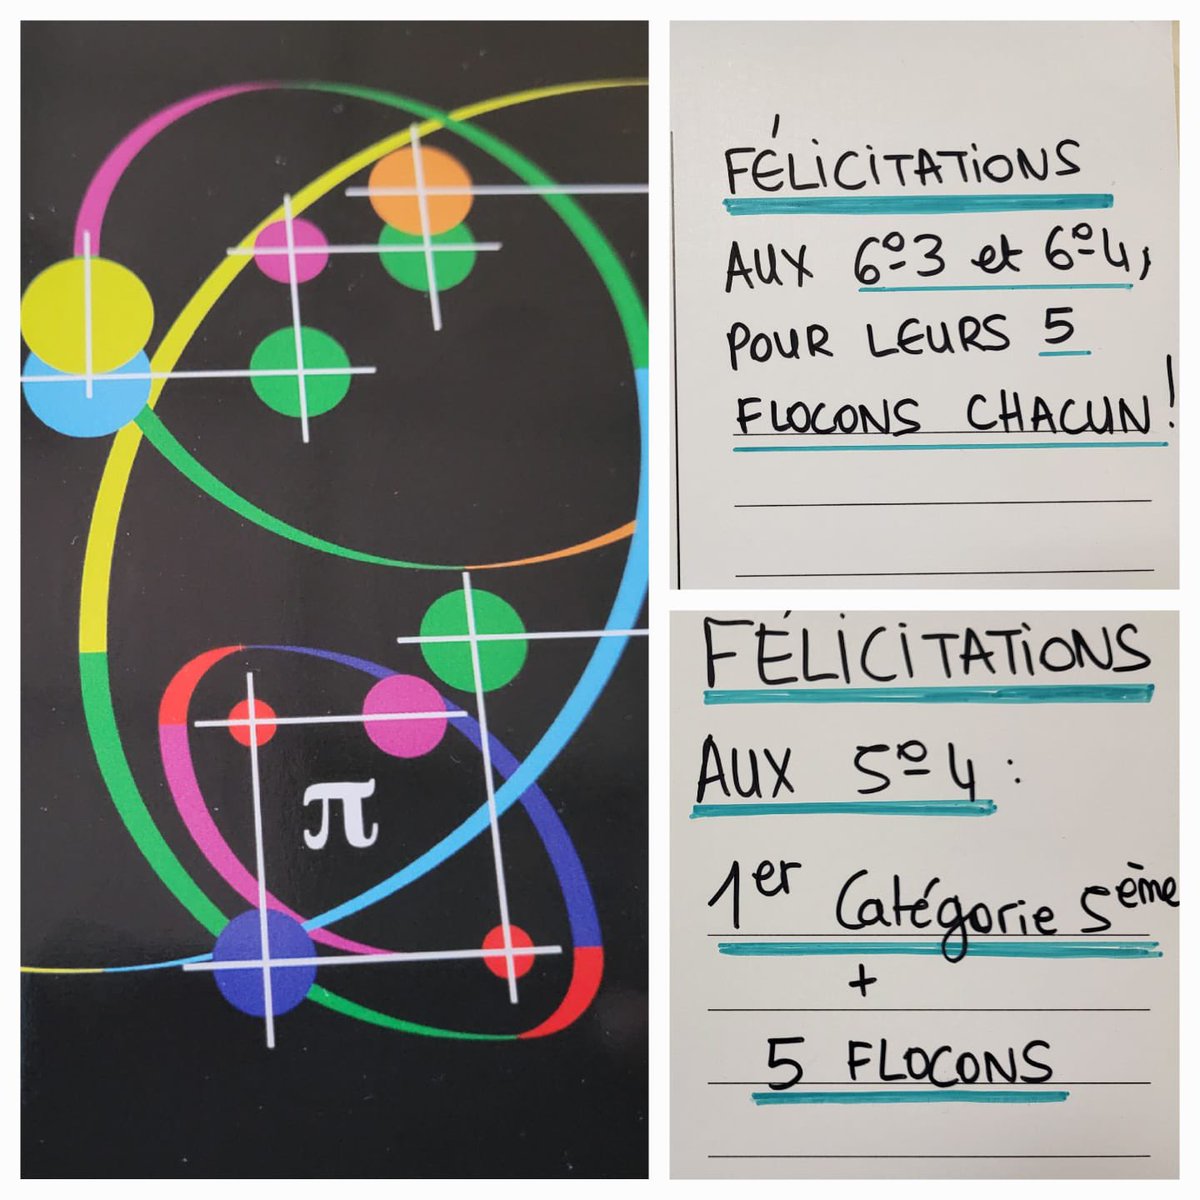 π
FÉLICITATIONS
AUX 6º3 et 6º4,
POUR LEURS 5
FLOCONS CHACUN!
FÉLICITATIONS
AUX 5º4 :
1er Catégorie 5ème
+
5 FLOCONS